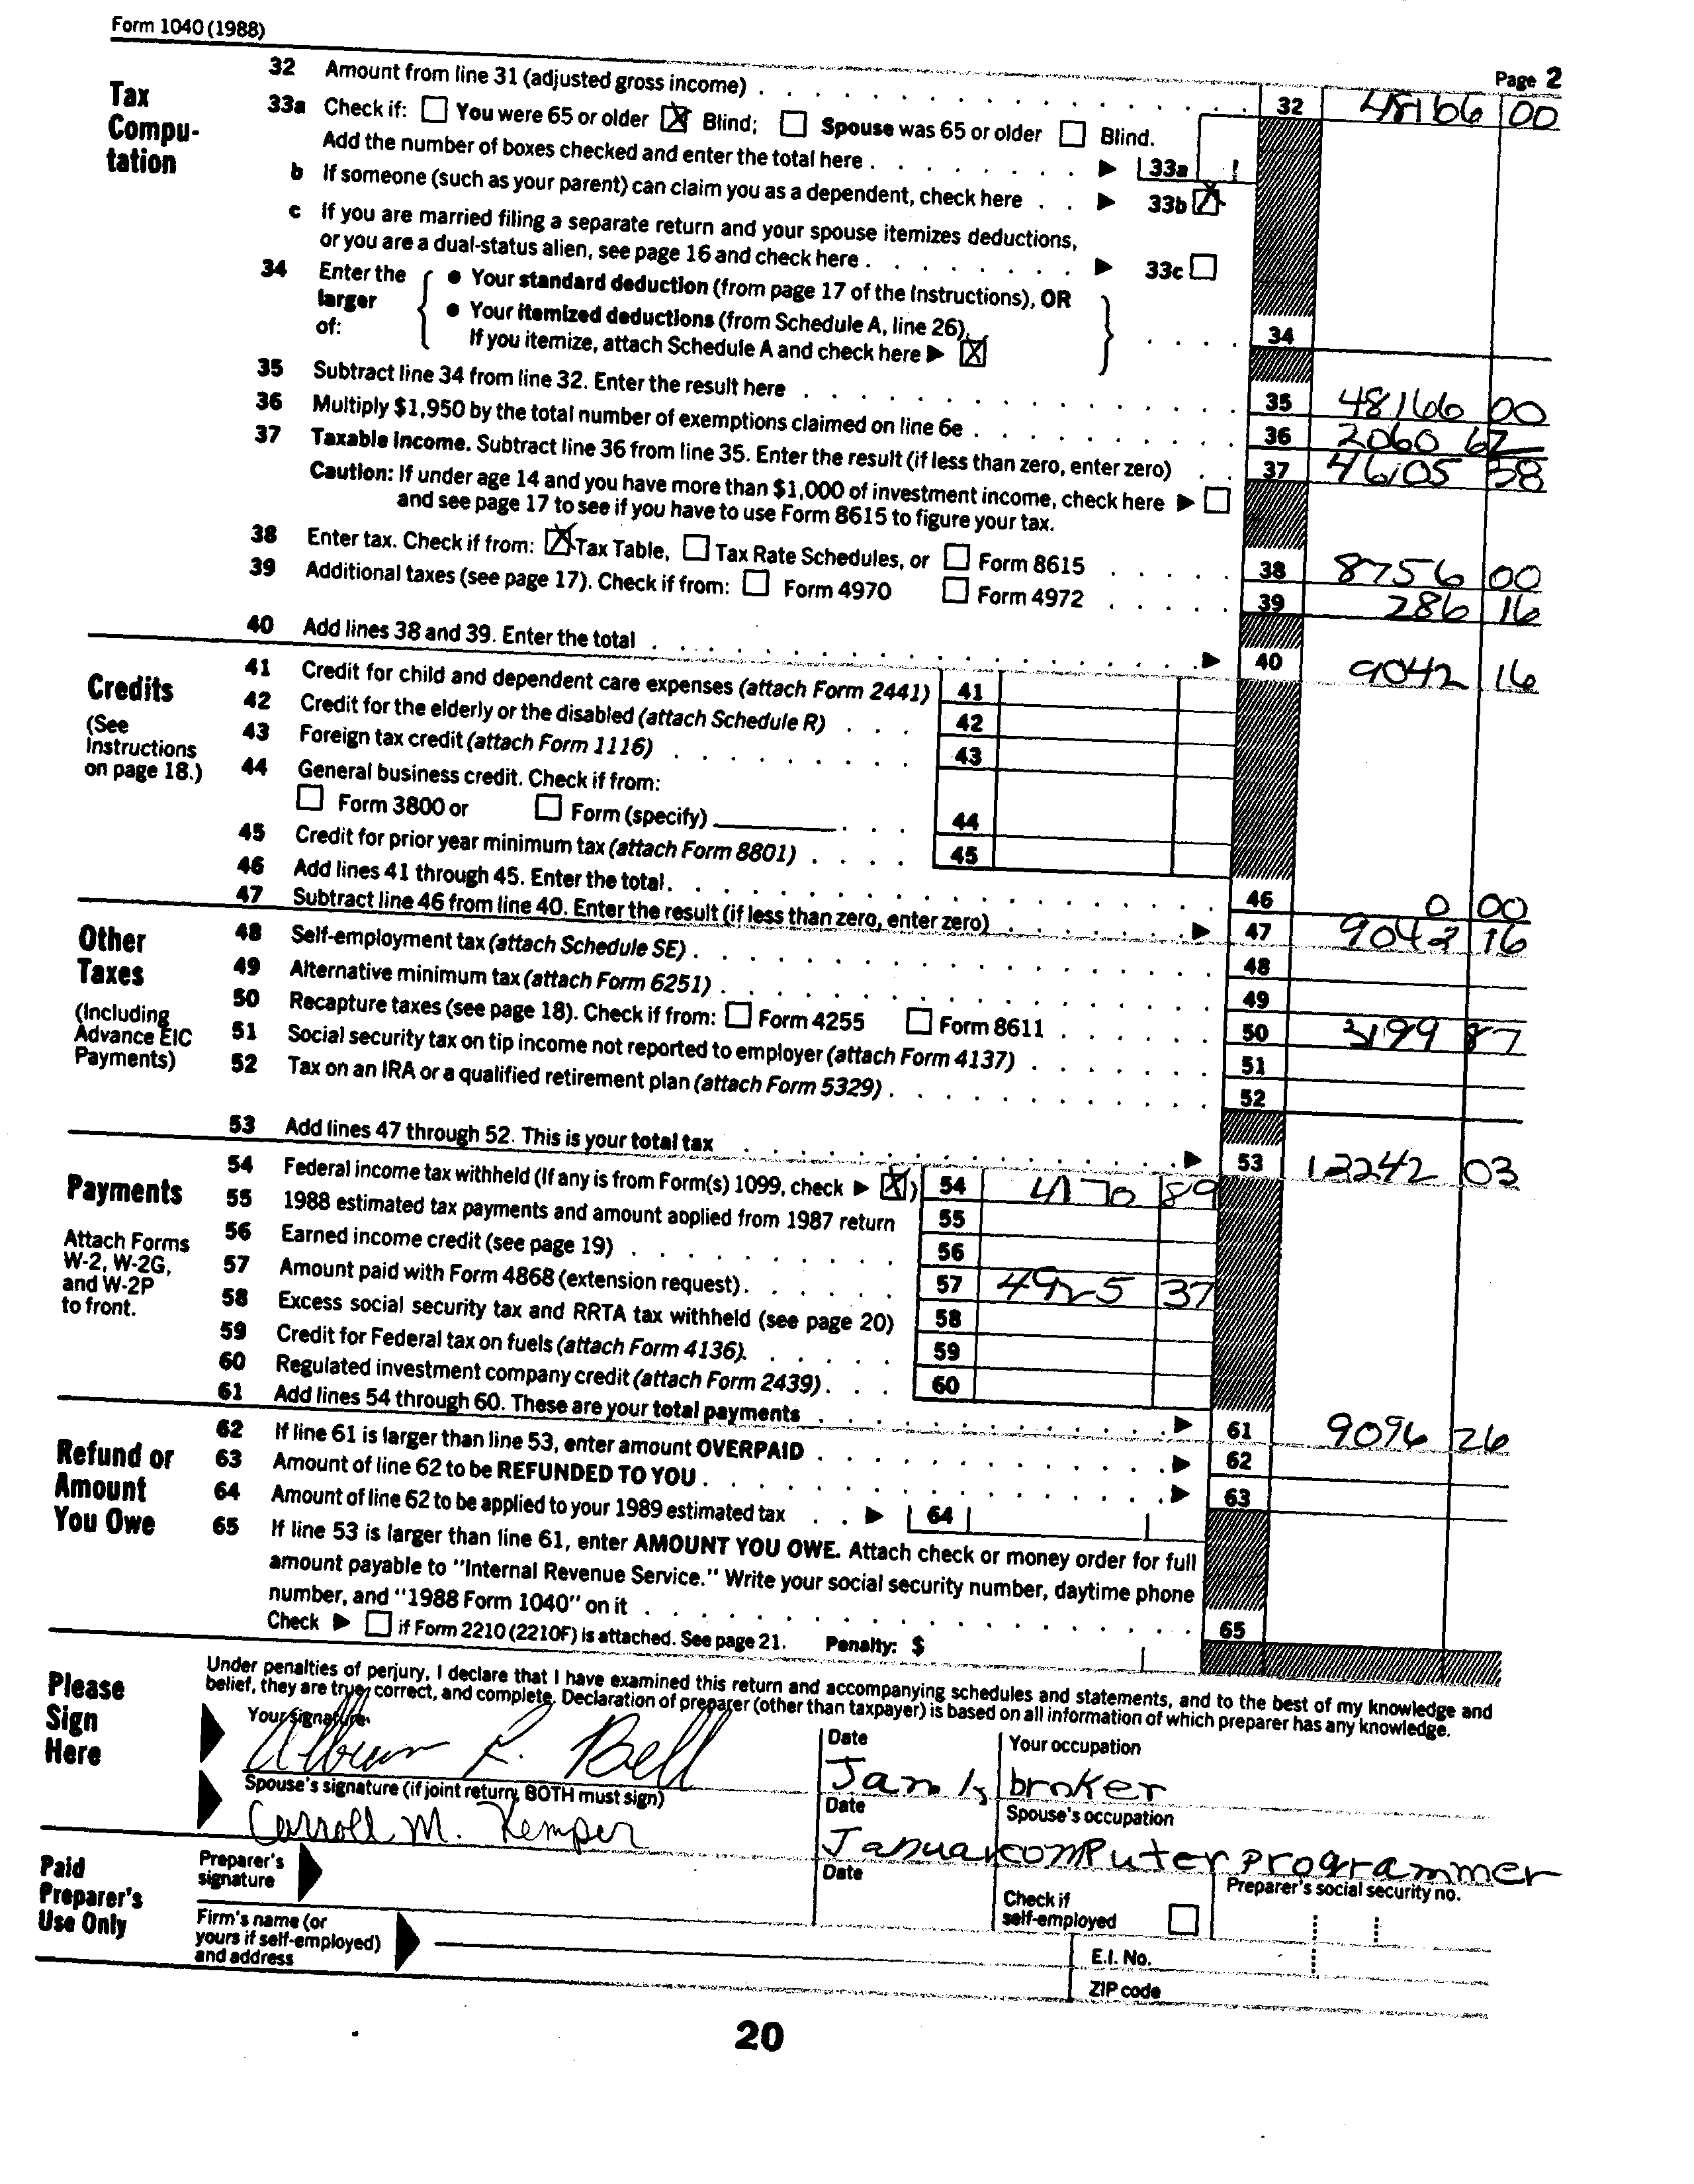 Form 1040 (1988)
Page 2
Tax Compu-tation
32 Amount from line 31 (adjusted gross income) 32 48166 00
33a Check if: ☐ You were 65 or older ☒ Blind; ☐ Spouse was 65 or older ☐ Blind.
Add the number of boxes checked and enter the total here ▶ 33a 1
b If someone (such as your parent) can claim you as a dependent, check here ▶ 33b ☒
c If you are married filing a separate return and your spouse itemizes deductions,
or you are a dual-status alien, see page 16 and check here ▶ 33c ☐
34 Enter the larger of: { ● Your standard deduction (from page 17 of the Instructions), OR
● Your itemized deductions (from Schedule A, line 26).
If you itemize, attach Schedule A and check here ▶ ☒ } 34
35 Subtract line 34 from line 32. Enter the result here 35 48166 00
36 Multiply $1,950 by the total number of exemptions claimed on line 6e 36 2060 62
37 Taxable income. Subtract line 36 from line 35. Enter the result (if less than zero, enter zero) 37 46105 38
Caution: If under age 14 and you have more than $1,000 of investment income, check here ▶ ☐
and see page 17 to see if you have to use Form 8615 to figure your tax.
38 Enter tax. Check if from: ☒ Tax Table, ☐ Tax Rate Schedules, or ☐ Form 8615 38 8756 00
39 Additional taxes (see page 17). Check if from: ☐ Form 4970 ☐ Form 4972 39 286 16
40 Add lines 38 and 39. Enter the total ▶ 40 9042 16
Credits
(See Instructions on page 18.)
41 Credit for child and dependent care expenses (attach Form 2441) 41
42 Credit for the elderly or the disabled (attach Schedule R) 42
43 Foreign tax credit (attach Form 1116) 43
44 General business credit. Check if from:
☐ Form 3800 or ☐ Form (specify) 44
45 Credit for prior year minimum tax (attach Form 8801) 45
46 Add lines 41 through 45. Enter the total 46 0 00
47 Subtract line 46 from line 40. Enter the result (if less than zero, enter zero) ▶ 47 9042 16
Other Taxes
(Including Advance EIC Payments)
48 Self-employment tax (attach Schedule SE) 48
49 Alternative minimum tax (attach Form 6251) 49
50 Recapture taxes (see page 18). Check if from: ☐ Form 4255 ☐ Form 8611 50 3199 87
51 Social security tax on tip income not reported to employer (attach Form 4137) 51
52 Tax on an IRA or a qualified retirement plan (attach Form 5329) 52
53 Add lines 47 through 52. This is your total tax ▶ 53 12242 03
Payments
Attach Forms W-2, W-2G, and W-2P to front.
54 Federal income tax withheld (If any is from Form(s) 1099, check ▶ ☒) 54 4170 89
55 1988 estimated tax payments and amount applied from 1987 return 55
56 Earned income credit (see page 19) 56
57 Amount paid with Form 4868 (extension request) 57 4925 37
58 Excess social security tax and RRTA tax withheld (see page 20) 58
59 Credit for Federal tax on fuels (attach Form 4136) 59
60 Regulated investment company credit (attach Form 2439) 60
61 Add lines 54 through 60. These are your total payments ▶ 61 9096 26
Refund or Amount You Owe
62 If line 61 is larger than line 53, enter amount OVERPAID ▶ 62
63 Amount of line 62 to be REFUNDED TO YOU ▶ 63
64 Amount of line 62 to be applied to your 1989 estimated tax ▶ 64
65 If line 53 is larger than line 61, enter AMOUNT YOU OWE. Attach check or money order for full
amount payable to "Internal Revenue Service." Write your social security number, daytime phone
number, and "1988 Form 1040" on it 65
Check ▶ ☐ if Form 2210 (2210F) is attached. See page 21. Penalty: $
Please Sign Here
Under penalties of perjury, I declare that I have examined this return and accompanying schedules and statements, and to the best of my knowledge and
belief, they are true, correct, and complete. Declaration of preparer (other than taxpayer) is based on all information of which preparer has any knowledge.
Your signature Date Your occupation
R. Bell Jan broker
Spouse's signature (if joint return, BOTH must sign) Date Spouse's occupation
Carroll M. Kemper Januar computer programmer
Paid Preparer's Use Only
Preparer's signature Date Check if self-employed ☐ Preparer's social security no.
Firm's name (or yours if self-employed) and address
E.I. No.
ZIP code
20